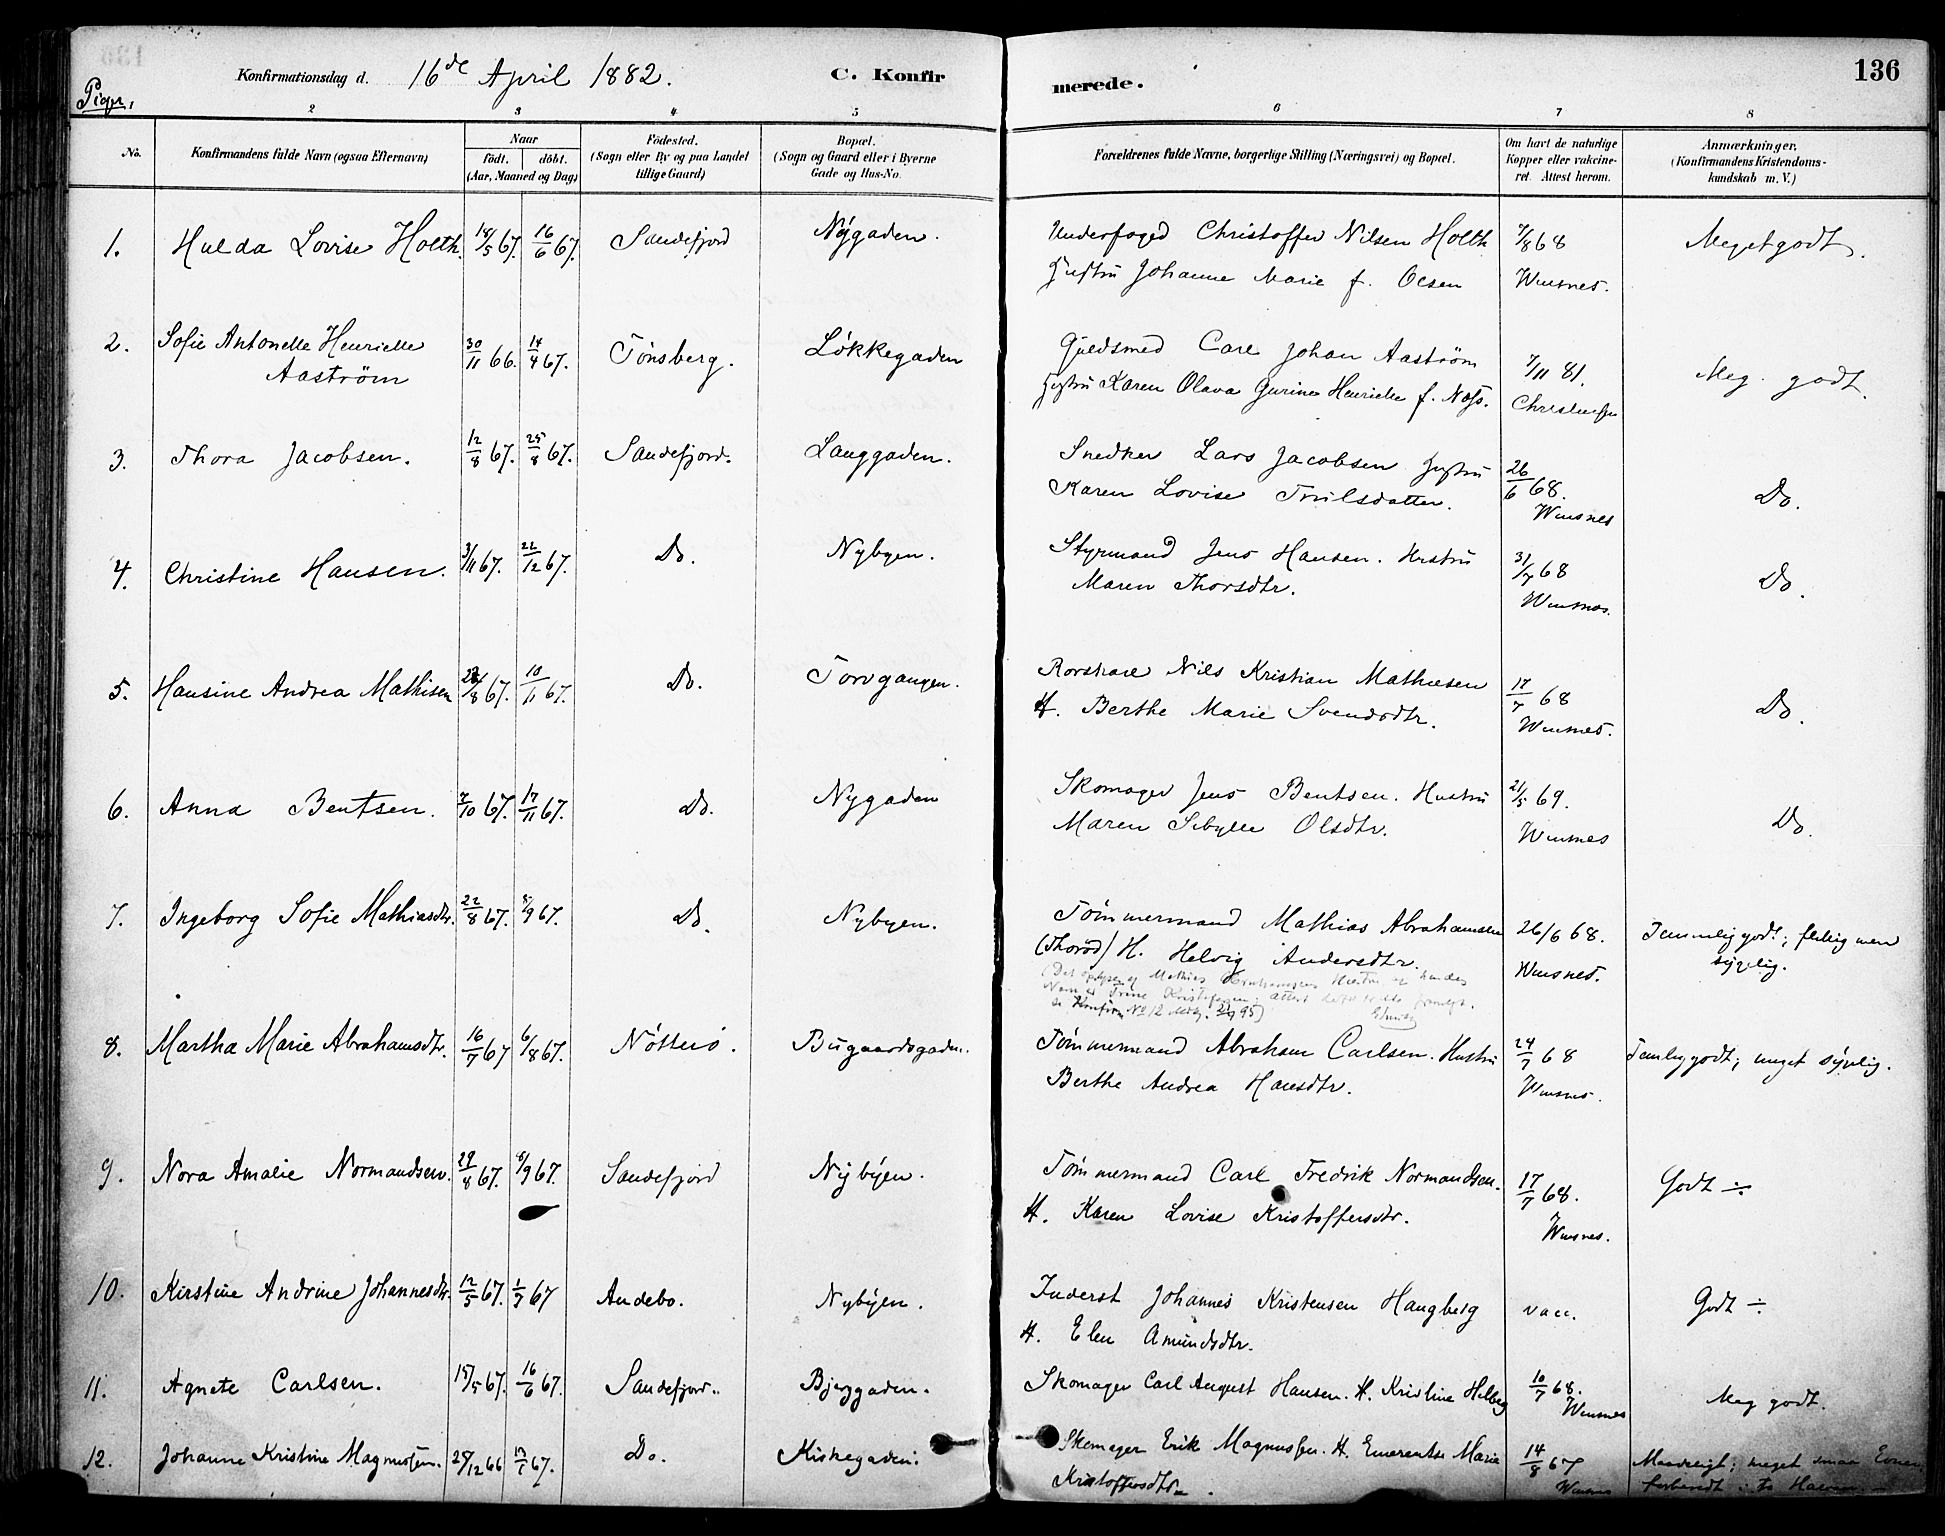 136
Konfirmationsdag d. 16de April 1882. C. Konfirmerede.
Piger,
2 3 4 5 6 7 8
No. Konfirmandens fulde Navn (ogsaa Efternavn) Naar födt. döbt. (Aar, Maaned og Dag) Födested. (Sogn eller By og paa Landet tillige Gaard) Bopæl. (Sogn og Gaard eller i Byerne Gade og Hus-No. Forældrenes fulde Navne, borgerlige Stilling (Næringsvei) og Bopæl. Om havt de naturlige Kopper eller vakcineret. Attest herom. Anmærkninger. (Konfirmandens Kristendomskundskab m. V.)
1. Hulda Lovise Holth. 18/5 67. 16/6 67. Sandefjord Nÿgaden. Underfoged Christoffer Nilsen Holth 7/8 68 Megetgodt.
Hustru Johanne Marie f. Olsen Winsnes.
2. Sofie Antonette Henriette 30/11 66. 14/4 67. Tönsberg. Lökkegaden Guldsmed Carl Johan Aaström 7/11 81. Meg. godt.
Aaström Hustru Karen Olava Gurine Henriette f. Næss.
3. Thora Jacobsen. 12/8 67. 25/8 67. Sandefjord. Langgaden. Snedker Lars Jacobsen Hustru 26/6 68. Do.
Karen Lovise Trulsdatter. Winsnes
4. Christine Hansen. 3/11 67. 22/12 67. Do. Nybyen. Styrmand Jens Hansen. Hustru 31/7 68 Do.
Maren Thorsdtr. Winsnes.
5. Hansine Andrea Mathisen 67. 10/11 67. Do. Torvgangen. Nils Kristian Mathiesen 17/7 68 Do.
H. Berthe Marie Svendsdtr. Winsnes.
6. Anna Bentsen. 7/10 67. 17/11 67. Do. Nygaden Skomager Jens Bentsen. Hustru 21/5 69. Do.
Maren Sibylle Olsdtr. Winsnes
7. Ingeborg Sofie Mathiasdtr. 22/8 67. 8/9 67. Do. Nybyen. Tömmermand Mathias Abrahamsen 26/6 68. Temmelig godt; flittig men
(Thoröd) H. Helvig Andersdtr. Winsnes. sygelig.
(Det oplyses af Mathias Abrahamsens Hustru at hendes
Navn er Trine Kristofersen. Attest
se Konfirm No 12 95)
8. Martha Marie Abrahamsdtr. 16/7 67 6/8 67. Nötterö. Bugaardsgaden. Tömmermand Abraham Carlsen. Hustru 24/7 68 Temlig godt; meget sÿgelig.
Berthe Andrea Hansdtr. Winsnes.
9. Nora Amalie Normandsen. 29/8 67. 8/9 67. Sandefjord Nÿbÿen. Tömmermand Carl Fredrik Normandsen. 17/7 68. Godt ÷
H. Karen Lovise Kristoffersdtr. Winsnes.
10. Kirstine Andrine Johannesdtr. 12/5 67. 67 Andebo. Nybÿen. Inderst Johannes Kristensen Haugberg vacc. Godt ÷
H. Elen Amundsdtr.
11. Agnete Carlsen. 15/5 67. 16/6 67. Sandefjord. Bjerggaden. Skomager Carl August Hansen. H. Kristine Helberg 10/7 68. Meg godt.
Winsnes
12. Johanne Kristine Magnussen. 25/12 66 67. Do. Kirkegaden. Skomager Erik Magnussen. H. Emerentse Marie 14/8 67 Maadeligt; meget smaa Evner,
Kristoffersdtr. Winsnes